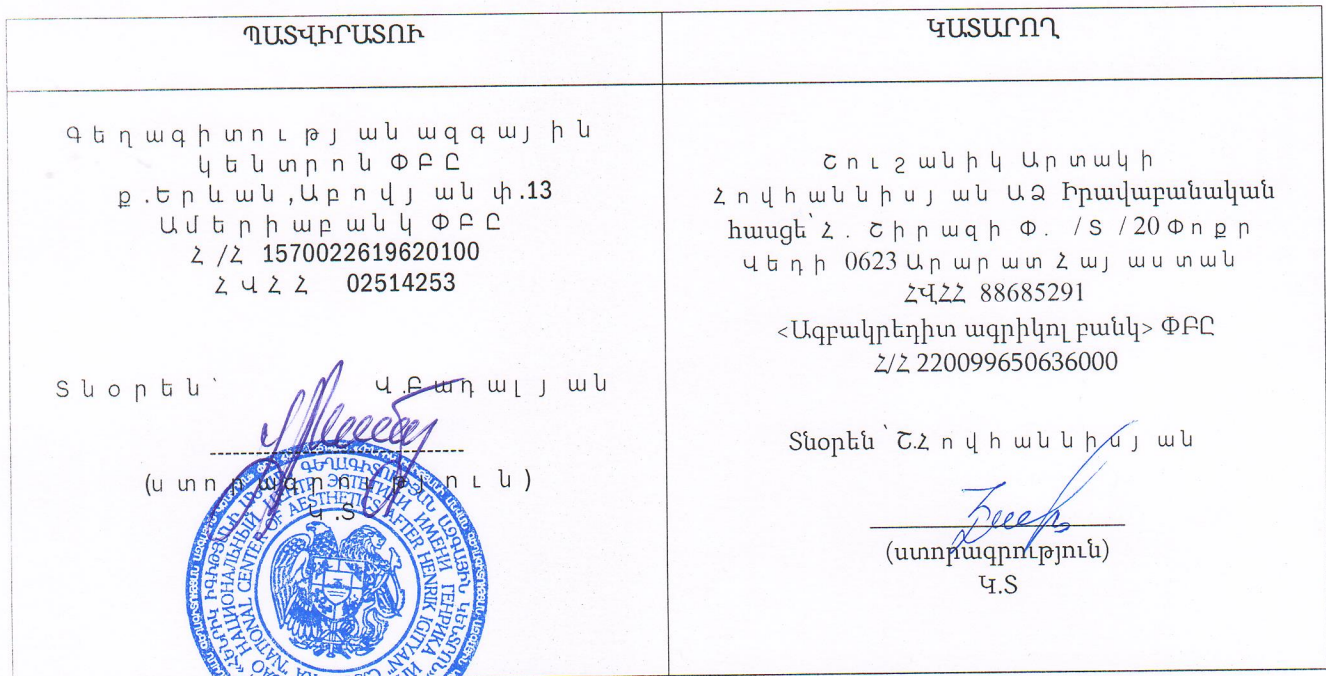 ՊԱՏՎԻՐԱՏՈՒ
Գեղագիտության ազգային
կենտրոն ՓԲԸ
ք.Երևան,Աբովյան փ.13
Ամերիաբանկ ՓԲԸ
Հ/Հ 1570022619620100
ՀՎՀՀ 02514253
Տնօրեն՝ Վ.Բադալյան
(ստորագրություն)
Կ.Տ
ԿԱՏԱՐՈՂ
Շուշանիկ Արտակի
Հովհաննիսյան ԱՁ Իրավաբանական
հասցե՝ Հ. Շիրազի Փ. /Տ /20 Փոքր
Վեդի 0623 Արարատ Հայաստան
ՀՎՀՀ 88685291
<Ագբակրեդիտ ագրիկոլ բանկ> ՓԲԸ
Հ/Հ 220099650636000
Տնօրեն՝ Շ.Հովհաննիսյան
(ստորագրություն)
Կ.Տ
ԳԵՂԱԳԻՏՈՒԹՅԱՆ ԱԶԳԱՅԻՆ ԿԵՆՏՐՈՆ
НАЦИОНАЛЬНЫЙ ЦЕНТР ЭСТЕТИКИ ИМЕНИ ГЕНРИКА
"NATIONAL CENTER OF AESTHETICS AFTER HENRIK IGITYAN"